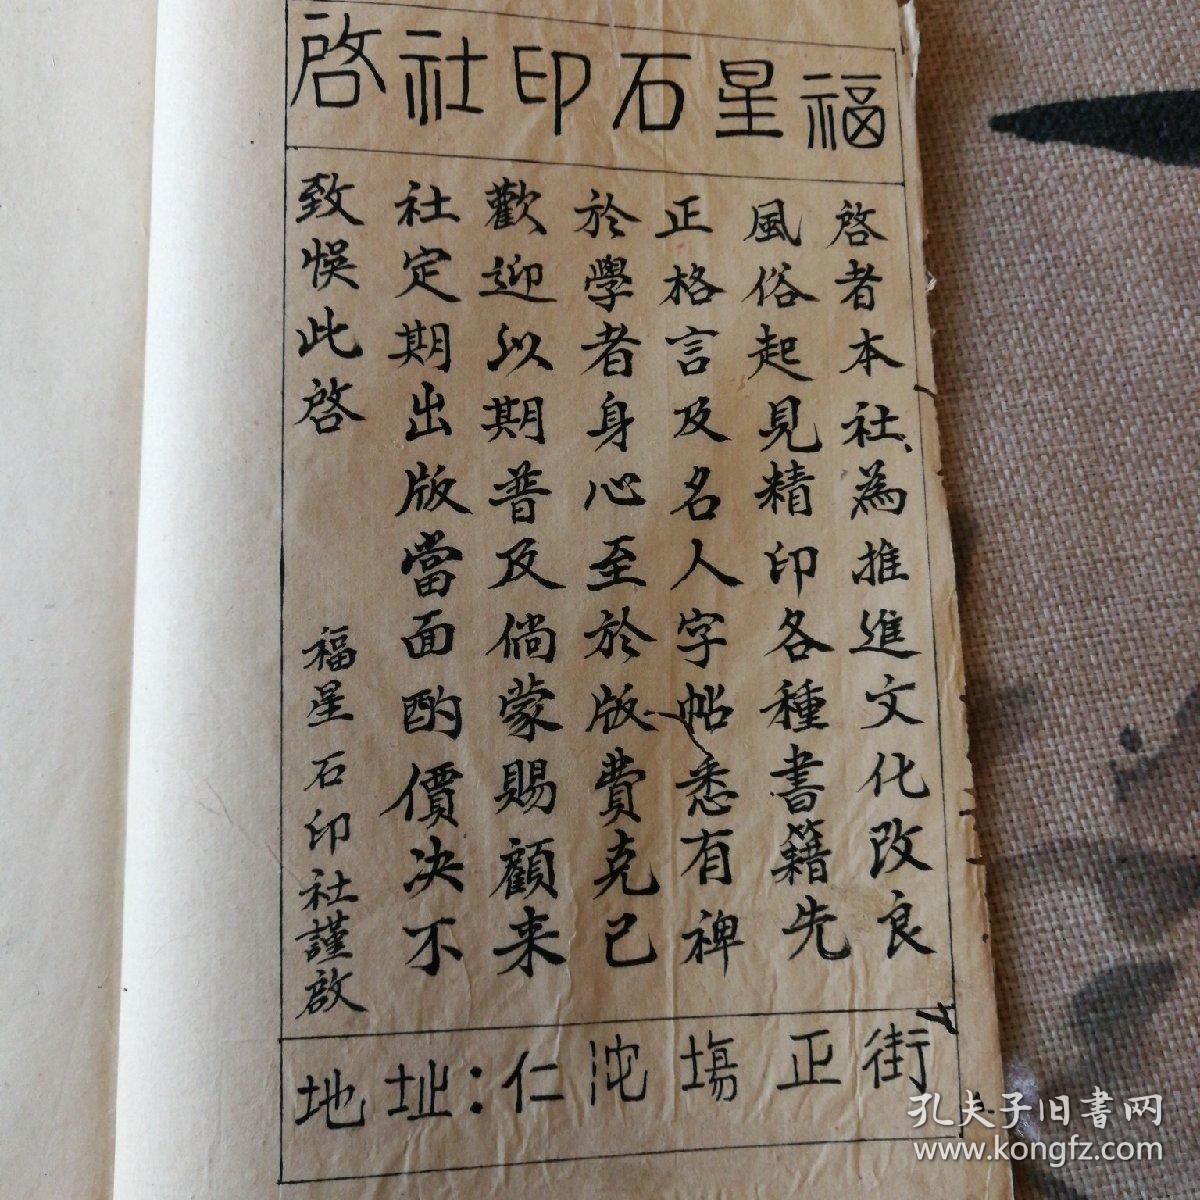 福星石印社啓
啓者本社為推進文化改良
風俗起見精印各種書籍先
正格言及名人字帖悉有裨
於學者身心至於版費克己
歡迎以期普及倘蒙賜顧来
社定期出版當面酌價決不
致悞此啓
福星石印社謹啟
地址：仁沱塲正街
孔夫子旧書网
www.kongfz.com